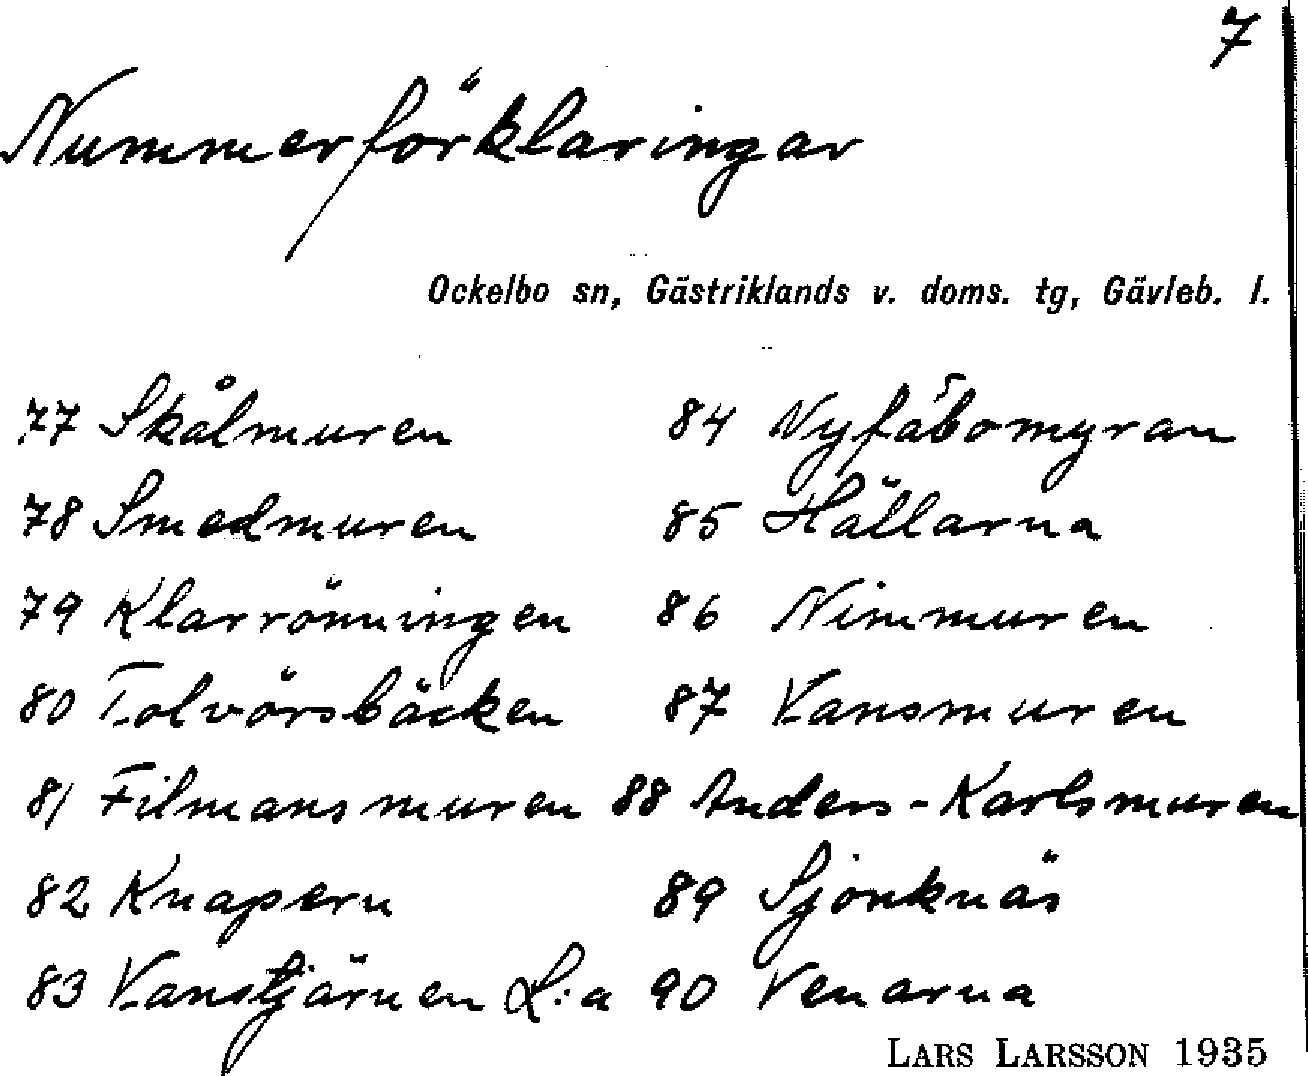 7
Nummerförklaringar
Ockelbo sn, Gästriklands v. doms. tg, Gävleb. l.
77 Skålmuren
78 Smedmuren
79 Klarrönningen
80 Tolvörsbäcken
81 Filmansmuren
82 Knapern
83 Vanstjärnen L:a
84 Nyfäbomyran
85 Hällarna
86 Nimmuren
87 Vansmuren
88 Anders-Karlsmuren
89 Sjonknäs
90 Venarna
LARS LARSSON 1935